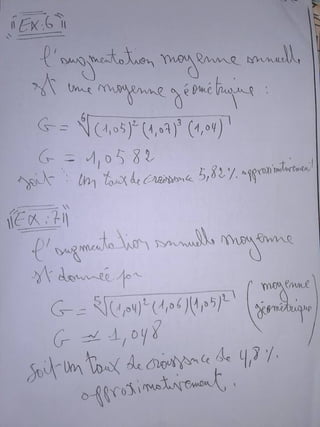 "Ex:6"
l'augmentation moyenne annuelle
est une moyenne géométrique :
G = ⁶√(1,05)² (1,07)³ (1,04)
G = 1,0582
soit : un taux de croissance 5,82 % approximativement
"Ex:7"
l'augmentation annuelle moyenne
est donnée par
G = ⁵√(1,04)² (1,06)(1,05)² (moyenne géométrique)
G ≃ 1,048
soit un taux de croissance de 4,8 %
approximativement.